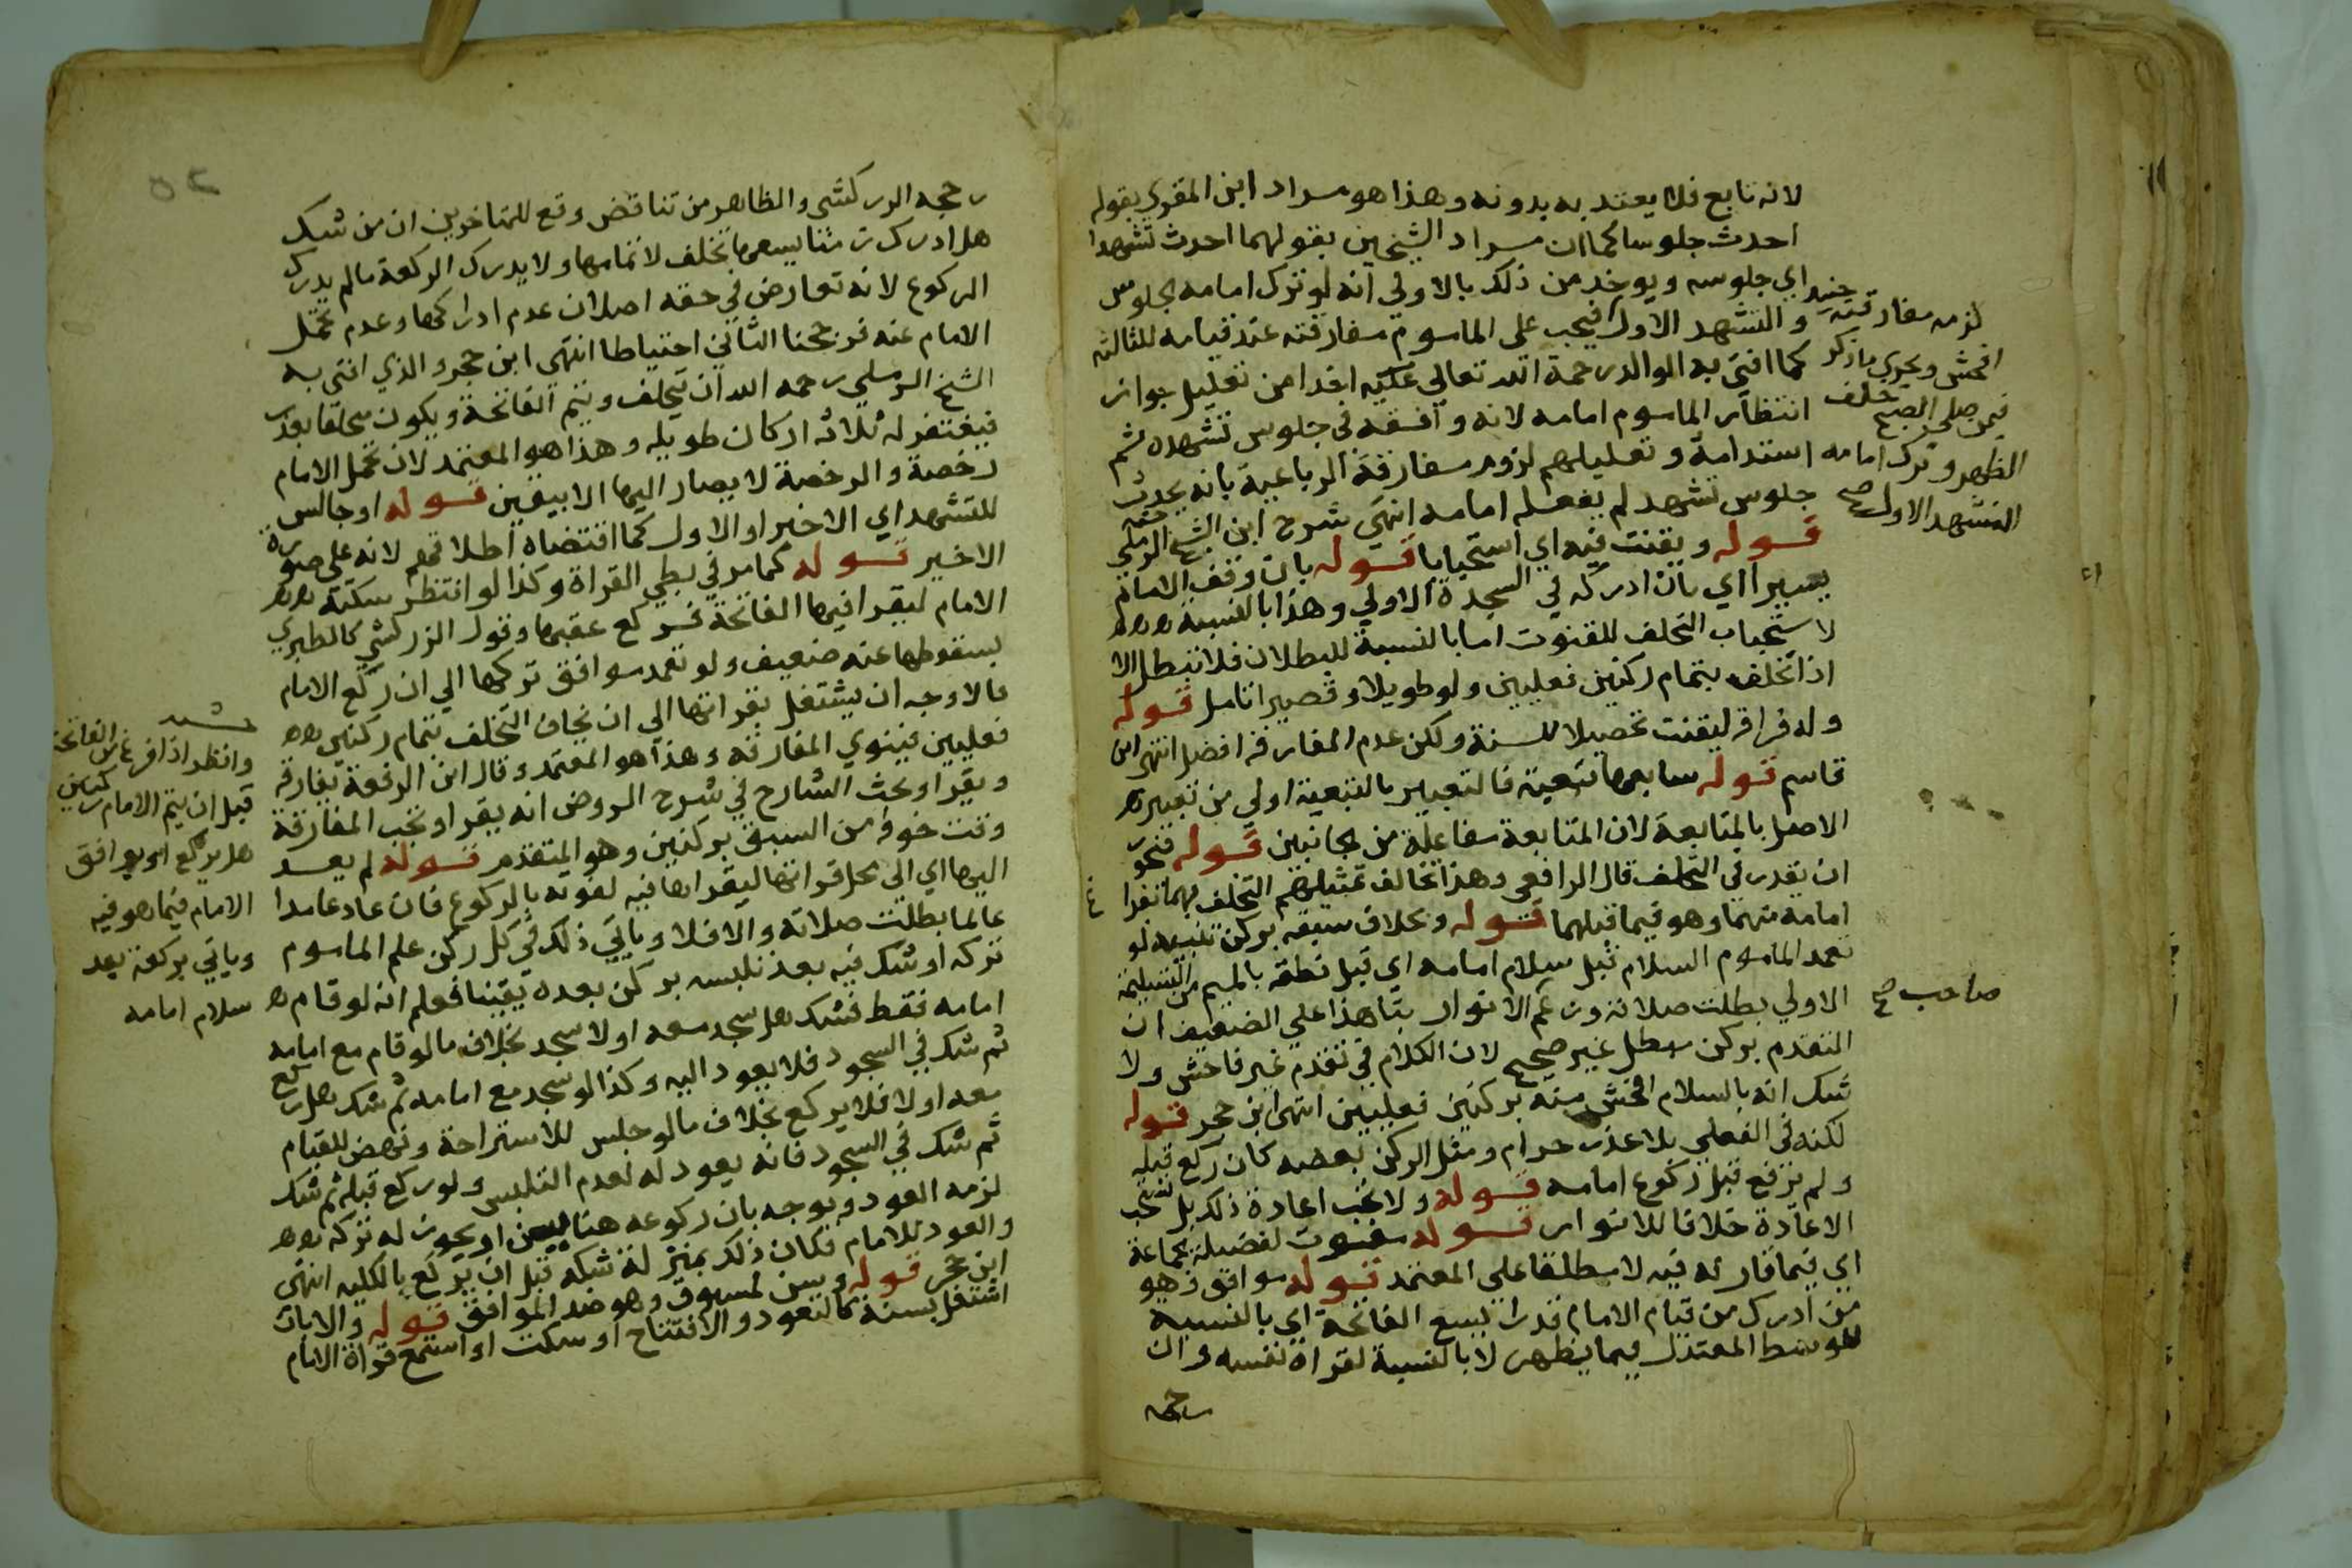 لانه تابع فلا يعتد به بدونه وهذا هو مراد ابن المقري بقوله
احدث جلوسا كما ان مراد الشيخين بقولهما احدث تشهدا
اي جلوسه ويوخذ من ذلك بالاولي انه لو ترك امامه الجلوس
والتشهد الاول فيجب على الماموم مفارقته عند قيامه للثالثة
كما افتي به الوالد رحمة الله تعالي عليه اخذا من تعليل جواز
انتظار الماموم امامه لانه وافقه في جلوس تشهده ثم
استدامة وتعليلهم لزوم مفارقة الرباعية بانه يحدث
جلوس تشهد لم يفعله امامه انتهي شرح ابن الشيخ الرملي
قوله ويقنت فيه اي استحبابا قوله بان وقف الامام
يسيرا اي بان ادركه في السجدة الاولي وهذا بالنسبة
لاستحباب التخلف للقنوت اما بالنسبة للبطلان فلا تبطل الا
اذا تخلف بتمام ركنين فعليين ولو طويلا وقصيرا تامل قوله
وله فراقه ليقنت تحصيلا للسنة ولكن عدم المفارقة افضل انتهى ابن
قاسم قوله سابعها تبعية فالتعبير بالتبعية اولي من تعبير
الاصل بالمتابعة لان المتابعة مفاعلة من الجانبين قوله فنحو
ان يقدر في التخلف قال الرافعي وهذا يخالف تمثيلهم التخلف بهما بفراغ
امامه منهما وهو فيما قبلهما قوله وبخلاف سبقه بركن تنبيه لو
تعمد الماموم السلام قبل سلام امامه اي قبل نطقه بالميم من التسليمة
الاولي بطلت صلاته وزعم الانوار بنا هذا علي الضعيف ان
المتقدم بركن مبطل غير صحيح لان الكلام في تقدم غير فاحش ولا
شك انه بالسلام افحش منه بركنين فعليين انتهى ابن حجر قوله
لكنه في الفعلي بلا عذر حرام ومثل الركن بعضه كان ركع قبله
ولم يرفع قبل ركوع امامه قوله ولا تجب اعادة ذلك بل تستحب
الاعادة خلافا للانوار قوله مفوت لفضيلة الجماعة
اي فيما قارنه فيه لا مطلقا علي المعتمد قوله موافق وهو
من ادرك من قيام الامام قدرا يسع الفاتحة اي بالنسبة
للوسط المعتدل فيما يظهر لا بالنسبة لقراة نفسه وان
رجحه
لزمه مفارقته حينئذ
افحش ويجري ما ذكر
فيمن صلى الصبح خلف
الظهر وترك امامه
التشهد الاول صح
صاحب صح
رجحه الزركشي والظاهر من تناقض وقع للمتاخرين ان من شك
هل ادرك زمنا يسعها تخلف لاتمامها ولا يدرك الركعة مالم يدرك
الركوع لانه تعارض في حقه اصلان عدم ادراكها وعدم تحمل
الامام عنه فرجحنا الثاني احتياطا انتهى ابن حجر والذي افتي به
الشيخ الرملي رحمه الله ان يتخلف ويتم الفاتحة ويكون متخلفا بعذر
فيغتفر له ثلاثة اركان طويله وهذا هو المعتمد لان تحمل الامام
رخصة والرخصة لا يصار اليها الا بيقين قوله او جالس
للتشهد اي الاخير او الاول كما اقتضاه اطلاقهم لانه على صورة
الاخير قوله كما مر في بطي القراة وكذا لو انتظر سكتة
الامام ليقرا فيها الفاتحة فركع عقبها وقول الزركشي كالطبري
بسقوطها عنه ضعيف ولو تعمد موافق تركها الي ان ركع الامام
فالاوجه ان يشتغل بقراتها الي ان يخاف التخلف بتمام ركنين
فعليين فينوي المفارقة وهذا هو المعتمد وقال ابن الرفعة يفارقه
ويقرا وبحث الشارح في شرح الروض انه يقرا وتجب المفارقة
وقت خوفه من السبق بركنين وهو المتقدم قوله لم يعد
اليها اي الي محل قراتها ليقراها فيه لفوته بالركوع فان عاد عامدا
عالما بطلت صلاته والا فلا وياتي ذلك في كل ركن علم الماموم
تركه او شك فيه بعد تلبسه بركن بعده يقينا فعلم انه لو قام
امامه فقط فشك هل سجد معه او لا سجد بخلاف ما لو قام مع امامه
ثم شك في السجود فلا يعود اليه وكذا لو سجد مع امامه ثم شك هل ركع
معه او لا فلا يركع بخلاف ما لو جلس للاستراحة ونهض للقيام
ثم شك في السجود فانه يعود له لعدم التلبس ولو ركع قبله ثم شك
لزمه العود ويوجه بان ركوعه هنا يسن او يجوز له تركه
والعود للامام فكان ذلك بمنزلة شكه قبل ان يركع بالكليه انتهى
ابن حجر قوله وسن لمسبوق وهو ضد الموافق قوله والا بان
اشتغل بسنة كالتعوذ والافتتاح او سكت او استمع قراة الامام
وانظر اذا فرغ من الفاتحة
قبل ان يتم الامام ركنين
هل يركع او يوافق
الامام فيما هو فيه
وياتي بركعة بعد
سلام امامه